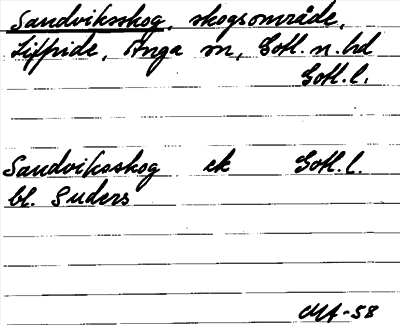 Sandviksskog, skogsområde,
Liffride, Anga sn, Gotl. n. hd
Gotl. l.
Sandviksskog ek Gotl. l.
bl. Suders
MA-58